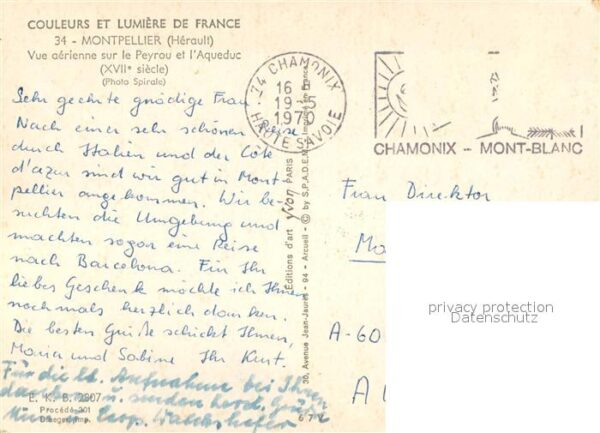 COULEURS ET LUMIÈRE DE FRANCE
34 - MONTPELLIER (Hérault)
Vue aérienne sur le Peyrou et l'Aqueduc
(XVIIe siècle)
(Photo Spirale)
Sehr geehrte gnädige Frau
Nach einer sehr schönen Reise
durch Italien und der Côte
d'azur sind wir gut in Mont-
pellier angekommen. Wir be-
suchten die Umgebung und
machten sogar eine Reise
nach Barcelona. Für Ihr
liebes Geschenk möchte ich Ihnen
nochmals herzlich danken.
Die besten Grüße schickt Ihnen,
Maria und Sabine Ihr Kurt.
Für die lb. Aufnahme bei Ihnen
dankend u. senden herzl. Grüße
E. K. B. 2907
Procédé 301
Draeger Imp.
672
74 CHAMONIX
16 H
19-5
1970
HAUTE SAVOIE
CHAMONIX - MONT-BLANC
Éditions d'art yvon PARIS
30, Avenue Jean-Jaurès - 94 - Arcueil - © by S.P.A.D.E.M.
Frau Direktor
A-60
privacy protection
Datenschutz